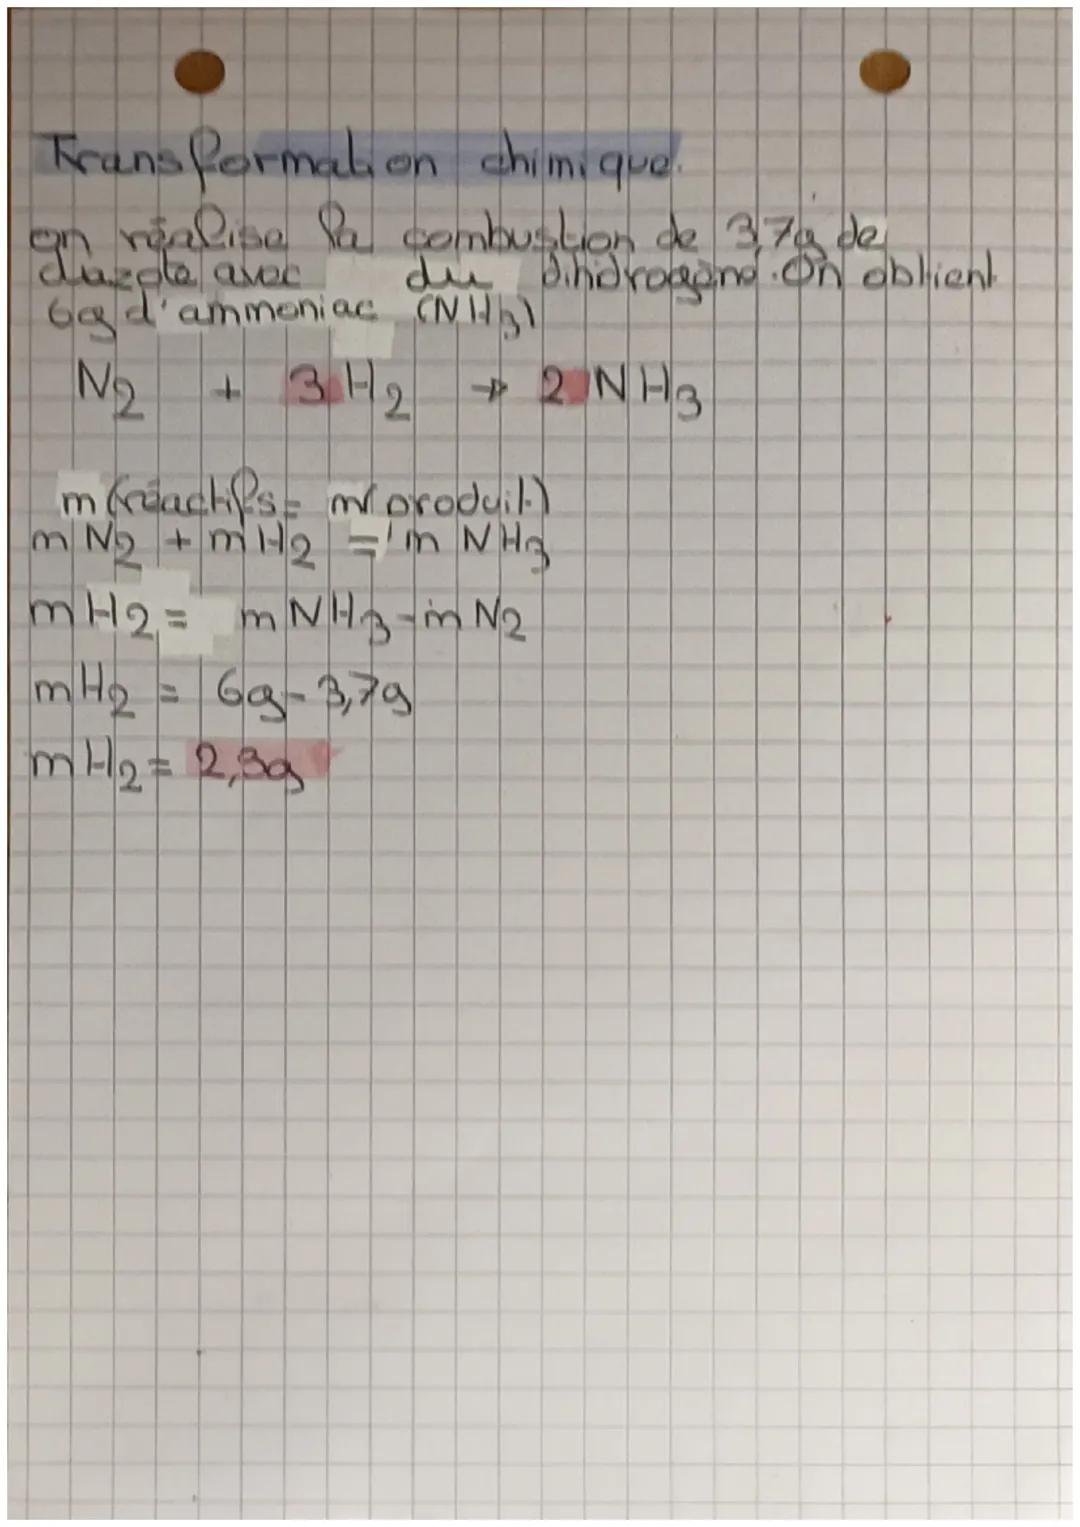 Transformation chimique.
on réalise la combustion de 3,7g de
diazote avec du dihidrogène. On obtient
6g d'ammoniac (NH3)
N2 + 3 H2 → 2 NH3
m (réactifs = m(produit)
m N2 + m H2 = m NH3
m H2 = m NH3 - m N2
m H2 = 6g - 3,7g
m H2 = 2,3g